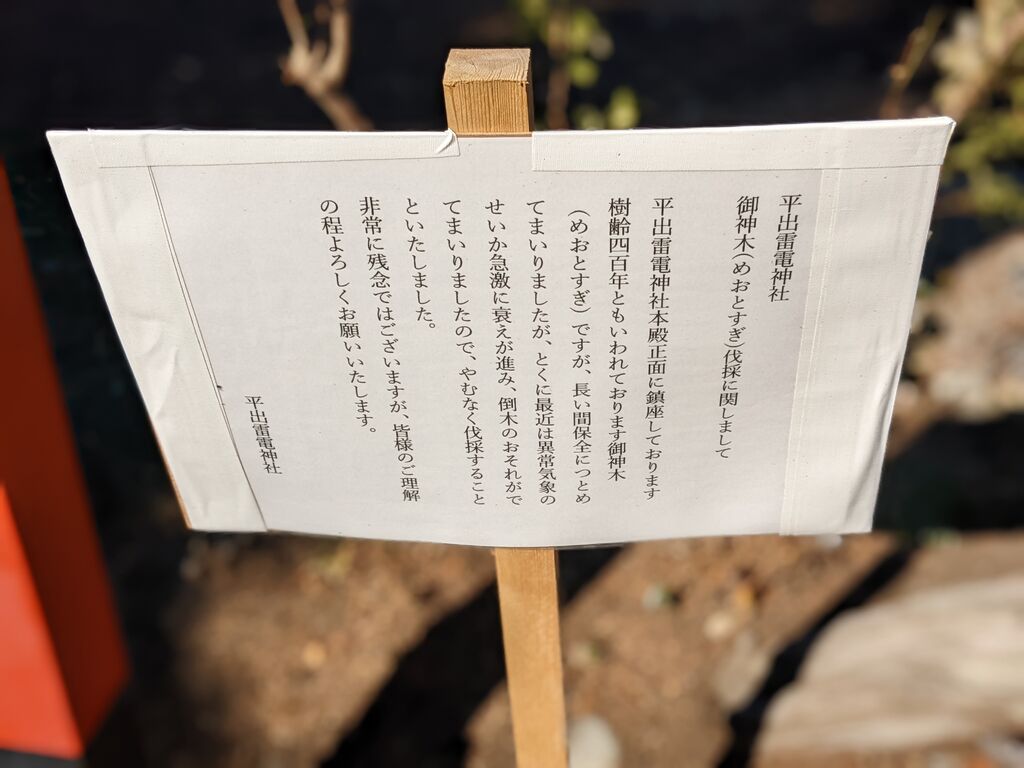 平出雷電神社
御神木(めおとすぎ)伐採に関しまして
平出雷電神社本殿正面に鎮座しております
樹齢四百年ともいわれております御神木
(めおとすぎ)ですが、長い間保全につとめ
てまいりましたが、とくに最近は異常気象の
せいか急激に衰えが進み、倒木のおそれがで
てまいりましたので、やむなく伐採すること
といたしました。
非常に残念ではございますが、皆様のご理解
の程よろしくお願いいたします。
平出雷電神社